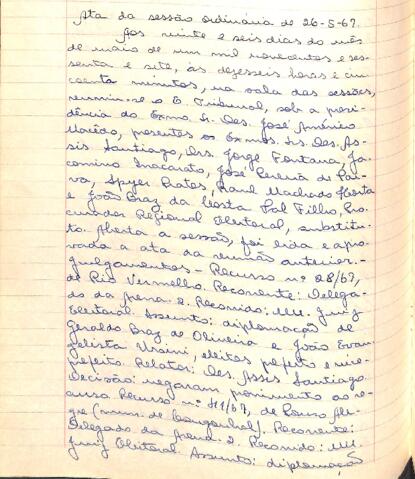 Ata da sessão ordinária de 26-5-67.
Aos vinte e seis dias do mês
de maio de um mil novecentos e ses-
senta e sete, às dezesseis horas e cin-
coenta minutos, na sala das sessões,
reuniu-se o E. Tribunal, sob a presi-
dência do Exmo. Sr. Des. José Américo
Macêdo, presentes os Exmos. Srs. Des. As-
sis Santiago, Drs. Jorge Fontana, Ja-
comino Inacarato, José Pereira de Pai-
va, Spyer Prates, Raul Machado Horta
e João Braz da Costa Val Filho, Pro-
curador Regional Eleitoral, substitu-
to. Aberta a sessão, foi lida e apro-
vada a ata da reunião anterior. -
Julgamentos - Recurso nº 28/67,
de Rio Vermelho. Recorrente: Delega-
do da Arena. 2. Recorrido: MM. Juiz
Eleitoral. Assunto: diplomação de
Geraldo Braz de Oliveira e João Evan-
gelista Ursini, eleitos prefeito e vice-
prefeito. Relator: Des. Assis Santiago.
Decisão: negaram provimento ao re-
curso. Recurso nº 411/67, de Pouso Ale-
gre (mun. de Congonhal). Recorrente:
Delegado da Arena. 2. Recorrido: MM.
Juiz Eleitoral. Assunto: diplomação